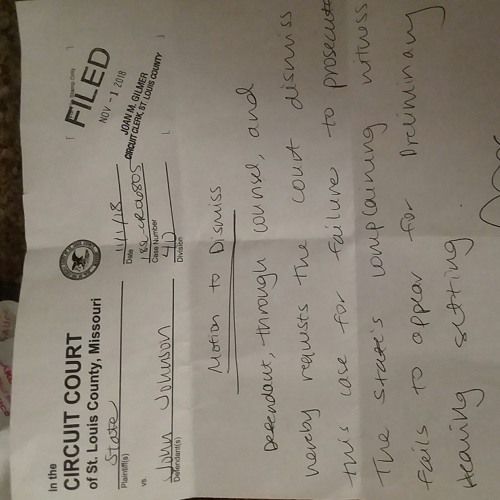 In the
CIRCUIT COURT
of St. Louis County, Missouri
State
Plaintiff(s)
vs.
John Johnson
Defendant(s)
11/1/18
Date
Case Number
40
Division
FILED
NOV - 1 2018
JOAN M. GILMER
CIRCUIT CLERK, ST. LOUIS COUNTY
Motion to Dismiss
Defendant, through counsel, and
hereby requests the court dismiss
this case for failure to prosecute
The state's complaining witness
fails to appear for Preliminary
Hearing setting.